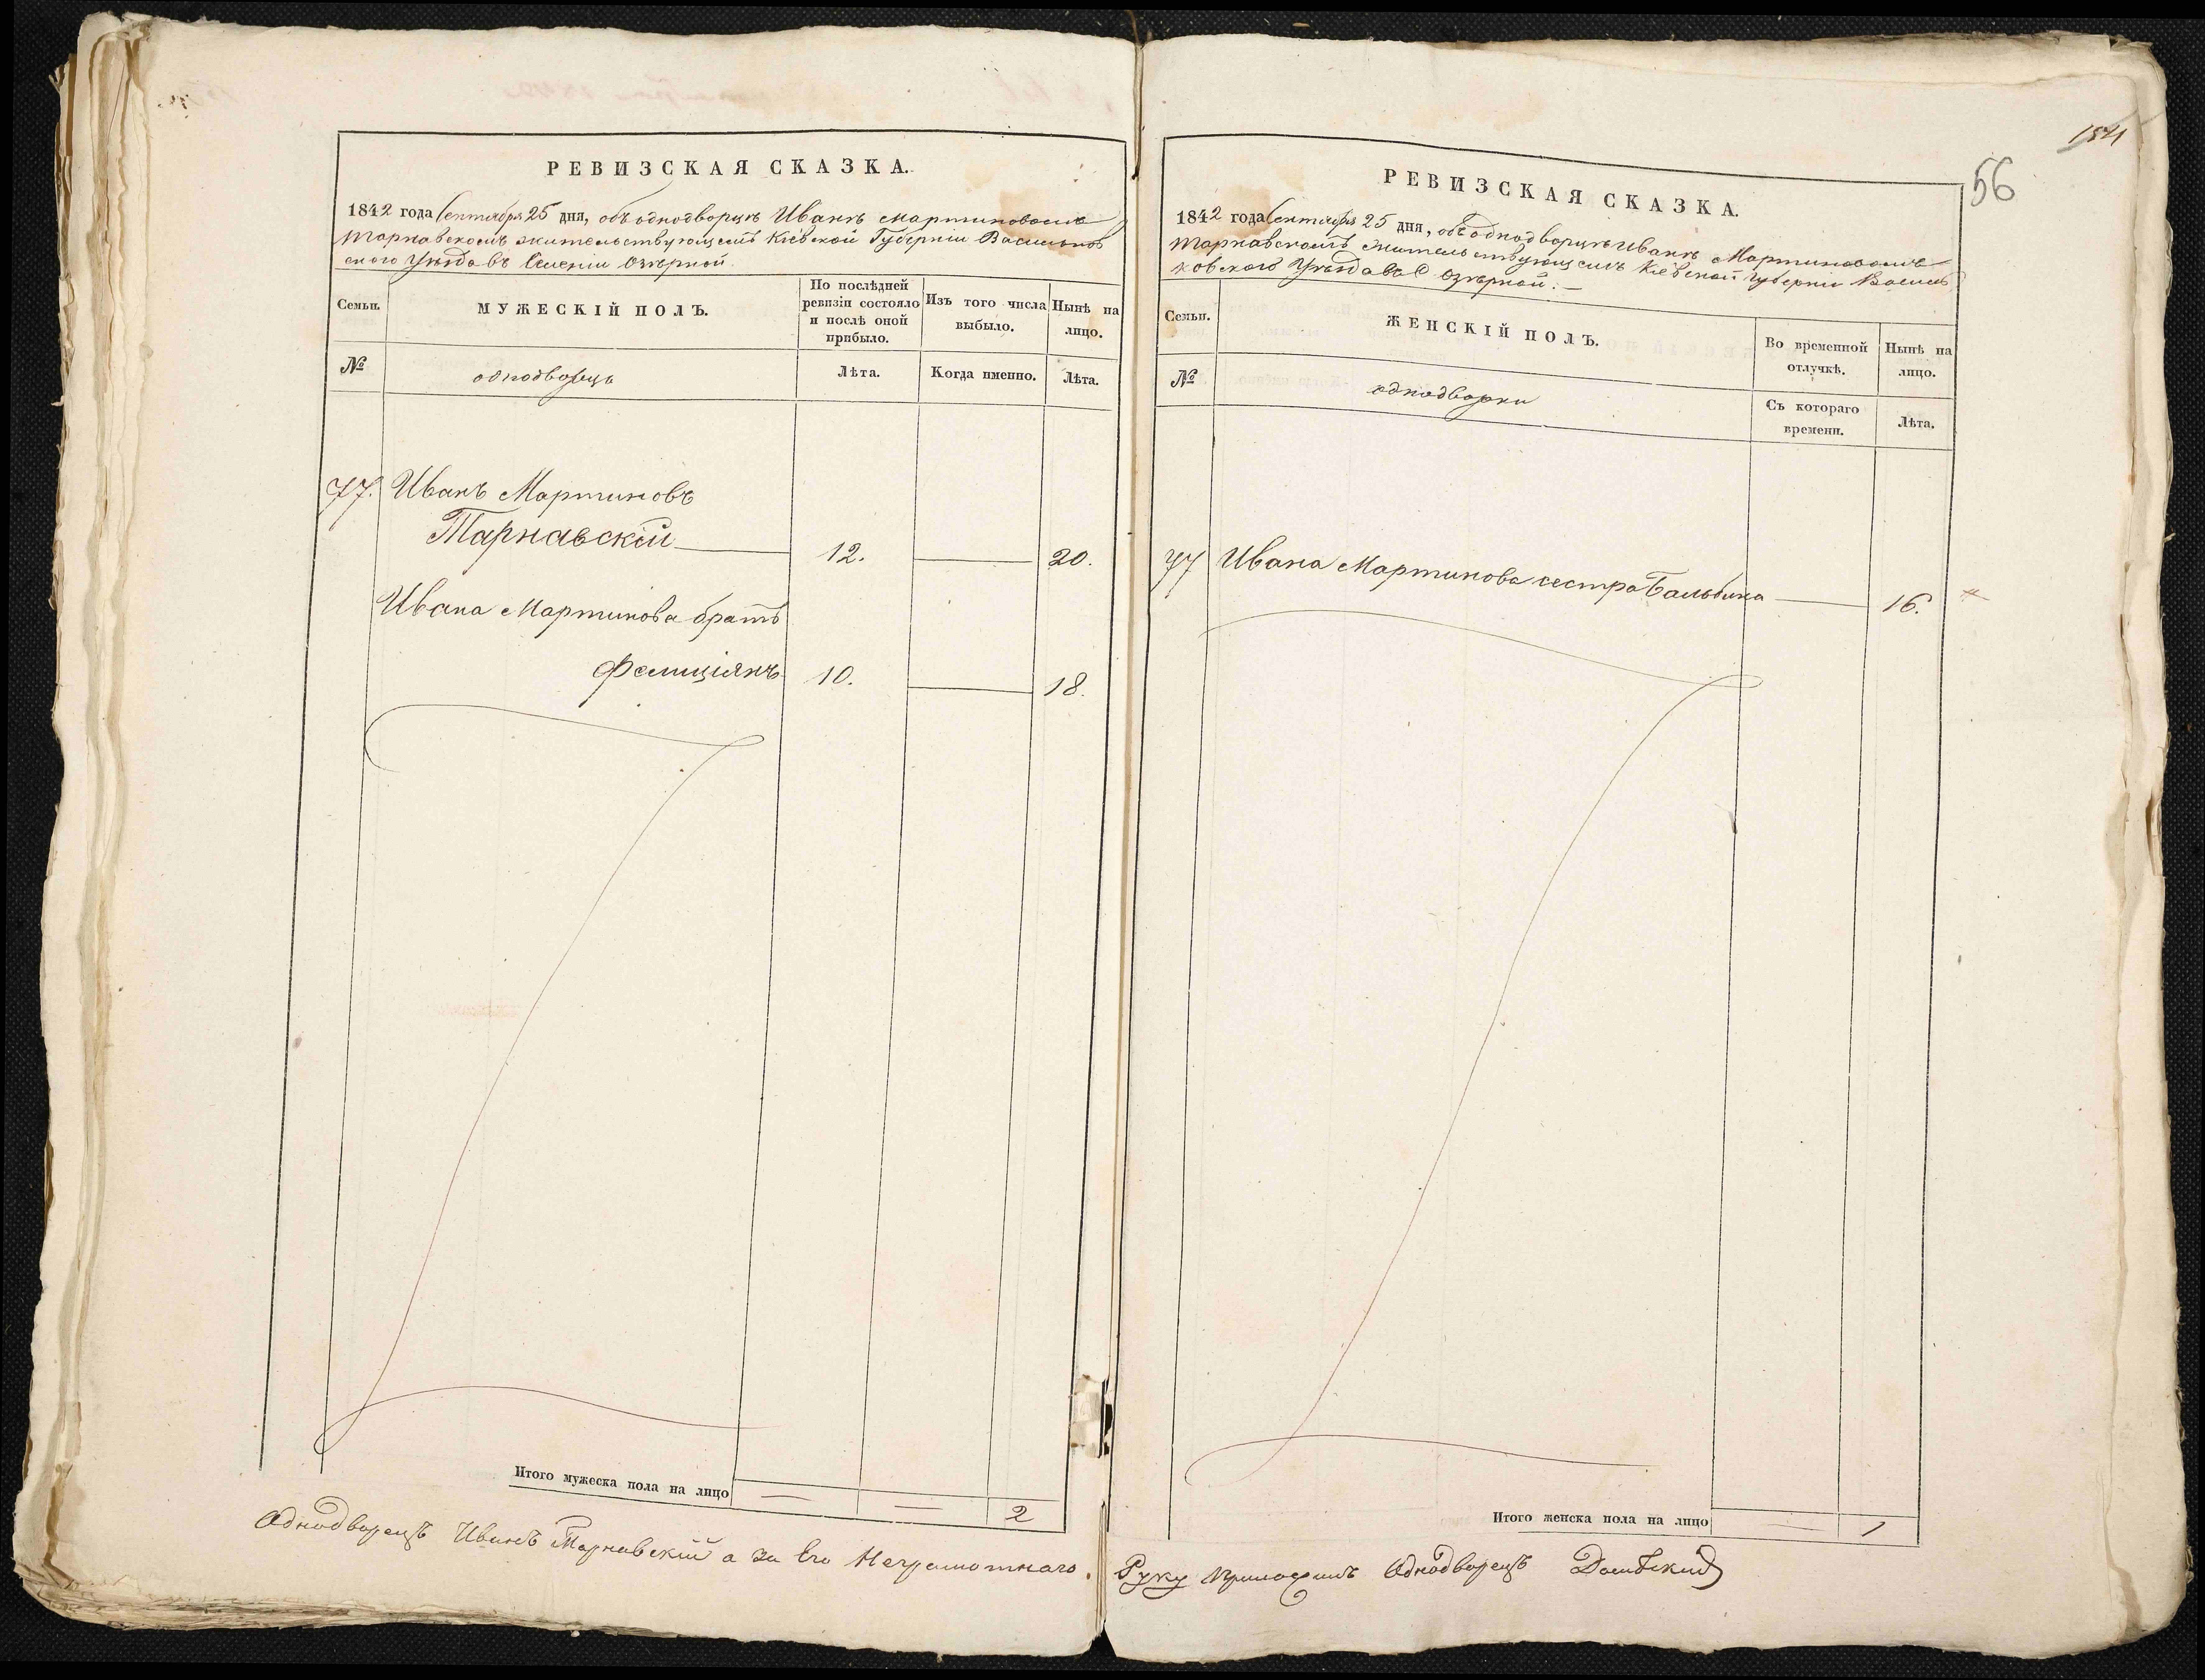 РЕВИЗСКАЯ СКАЗКА.
1842 года Сентября 25 дня, объ однодворцѣ Иванѣ Мартиновомъ
Тарнавскомъ жительствующемъ Кіевской Губерніи Васильков
ского Уѣзда въ Селеніи Озѣрной.
Семьи.
МУЖЕСКІЙ ПОЛЪ.
По послѣдней
ревизіи состояло
и послѣ оной
прибыло.
Изъ того числа
выбыло.
Нынѣ на
лицо.
№
однодворецъ
Лѣта.
Когда именно.
Лѣта.
77. Иванъ Мартиновъ
Тарнавскій 12. 20.
Ивана Мартинова братъ
Фелиціянъ 10. 18.
Итого мужеска пола на лицо 2
Однодворецъ Иванъ Тарнавский а за Его Неграмотнаго
1841
56
РЕВИЗСКАЯ СКАЗКА.
1842 года Сентября 25 дня, объ однодворцѣ Иванѣ Мартиновомъ
Тарнавскомъ жительствующемъ Кіевской Губерніи Василь
ковского Уѣзда въ С Озѣрной.
Семьи.
ЖЕНСКІЙ ПОЛЪ.
Во временной
отлучкѣ.
Нынѣ на
лицо.
№
однодворки
Съ котораго
времени.
Лѣта.
77 Ивана Мартинова сестра Бальбина 16.
Итого женска пола на лицо 1
Руку приложилъ Однодворецъ